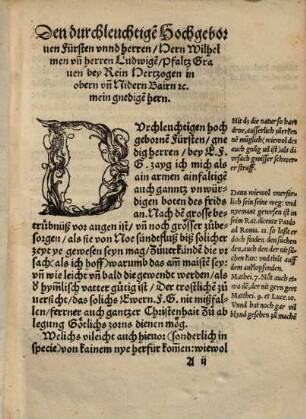 Den durchleuchtigẽ Hochgebor
nen Fürsten vnnd herren / Hern Wilhel
men vñ herren Ludwigẽ / Pfaltz Gra
uen bey Rein Hertzogen in
obern vñ Nidern Bairn ꝛc.
mein gnedigẽ hern.
DVrchleuchtigen hoch
geborne Fürsten / gne
dig herren / bey E.F.
G. zayg ich mich als
ain armen ainfaltigẽ
auch ganntz vnwür⸗
digen boten des frids
an. Nach dẽ grosse be⸗
trübniß vor augen ist / vñ noch grösser zůbe⸗
sorgen / als sie von Noe sündefluß biß solicher
zeyt ye gewesen seyn mag / Zuuerkündẽ die vr
sach (als ich hoff) warumb das am̃ maist sey /
vñ wie leicht vñ bald die gewendt werden / als
dẽ hymlisch vatter gütig ist / Der trostlichẽ zů
uersicht / das solichs Ewern. F.G. nit mißfal⸗
len / ferrner auch gantzer Christenhait zů ab
legung Götlichs zorns dienen mög.
Welichs vileicht auch hieuor (sonderlich in
specie) von kainem nye herfür kom̃en: wiewol
A ij
Nit dz die natur so hart
nẽ müglich / wie wol dẽs
auch gnůg
vrsach grösser schwer⸗
er straff.
Dann wiewol vnersuͤr
lich sein seine weg: vnd
nyemant gewesen ist in
sein Rat / dienent Paulo
ad Roma. 11. so last er
doch finden den suchen
den / auch den
kan: vnd thůt auff
dem anklopfenden.
Mathei. 7. Nit auch et⸗
wo dẽ / der nit gern
Matthei. 9. et Luce. 10.
Vnnd hat noch gar vil
Hynd gesehen zů machẽ